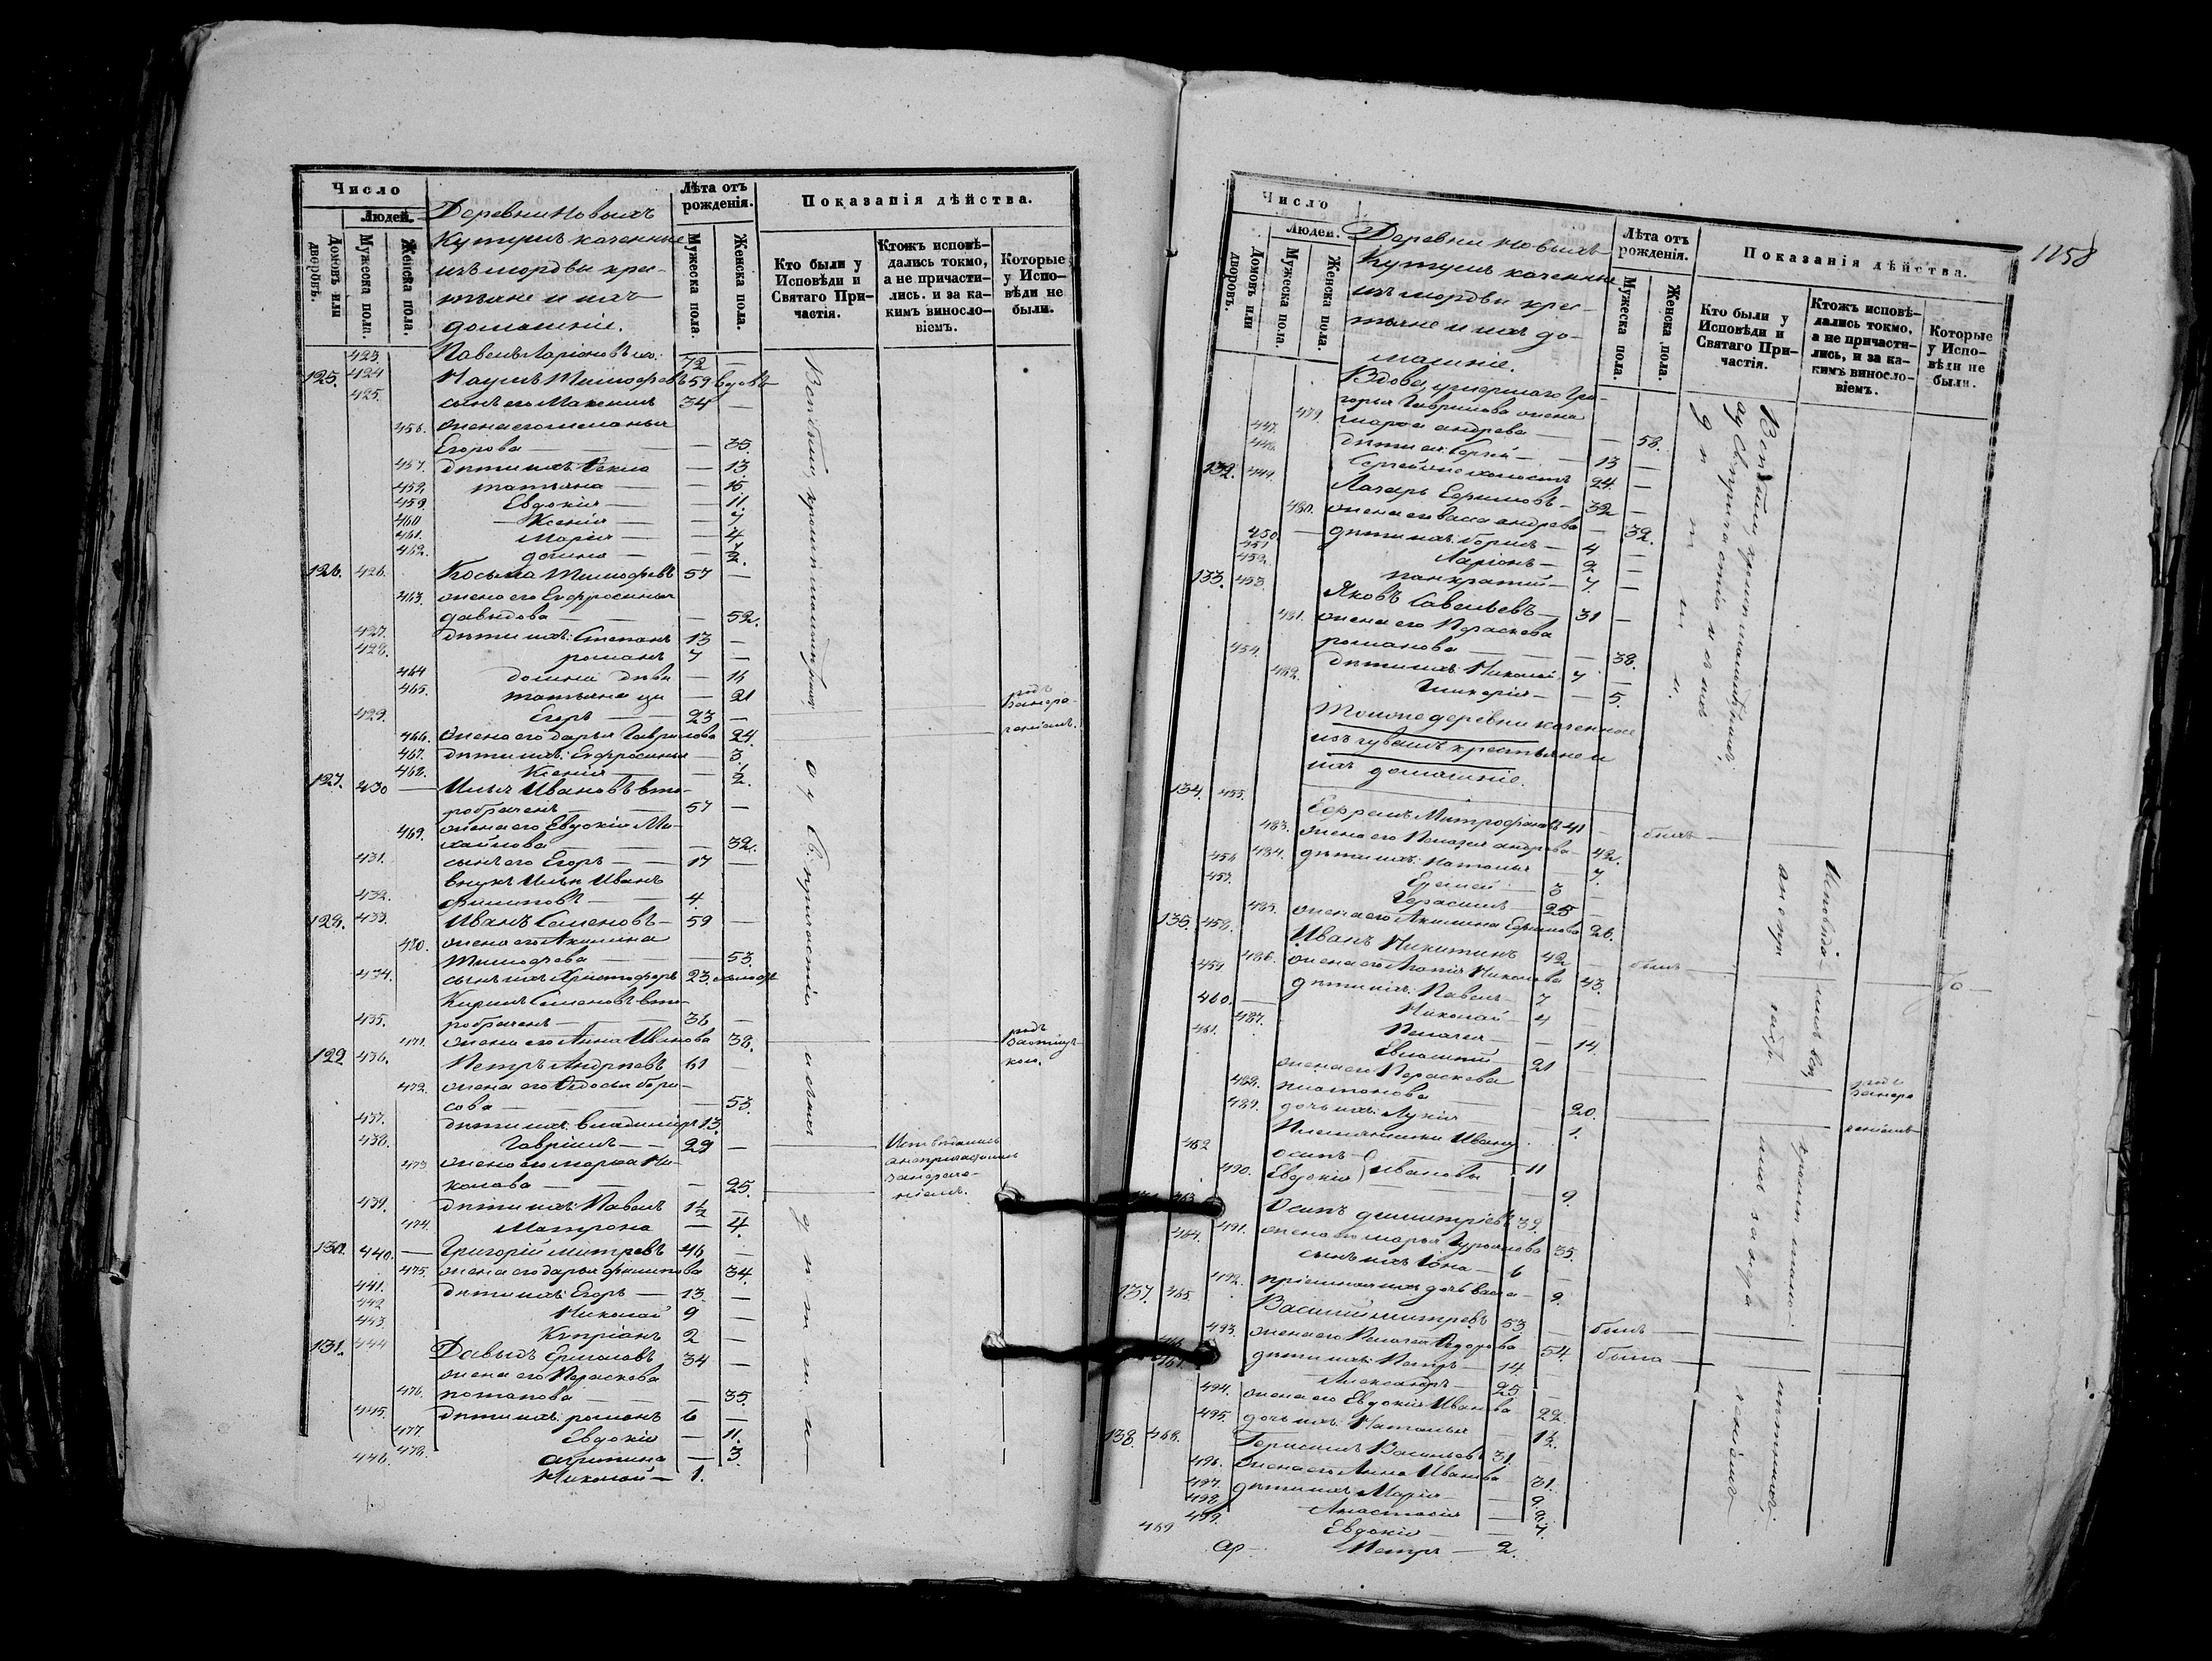 Число
Людей.
Домовъ или дворовъ.
Мужеска пола.
Женска пола.
Деревни Новыхъ
Кутушъ казенные
изъ мордвы кре-
стьяне и ихъ
домашніе.
Лѣта отъ рожденія.
Мужеска пола.
Женска пола.
Показанія дѣйства.
Кто были у Исповѣди и Святаго При-частія.
Ктожъ исповѣ-дались токмо, а не причасти-лись. и за ка-кимъ винослo-віемъ.
Которые у Испо-вѣди не были.
423. Павелъ Ларіоновъ 72 —
125. 424 Наумъ Тимофеевъ 59 вдовъ
425. сынъ его Максимъ 34 —
456. жена его Меланья
Егорова — — 35.
457. дѣти ихъ: Фекла — 13
458. татьяна — — 15
459. Евдокія — — 11.
460 Ксенія — — 7
461. Марія — — 4
462. домна — — ½.
126. 426. Косьма Тимофеевъ 57 —
463. жена его Евфросинья
давыдова — — 52.
427. дѣти ихъ: Степанъ 13 —
428. романъ 7 —
464 домна — 16
465. татьяна — 21
429. Егоръ — 23 —
466. жена его дарья Гаврилова 24.
467. дѣти ихъ: Евфросинья — 3.
468. Ксенія — — ½.
127. 430 Илья Ивановъ вто-
робраченъ — 57 —
469. жена его Евдокія Ми-
хайлова — — 32.
431. сынъ его Егоръ — 17 —
внукъ Ильи Иванъ
432. филиповъ — 4.
128. 433. Иванъ Семеновъ — 59 —
470. жена его Акилина
Тимофеева — — 53.
434. сынъ ихъ Христофоръ 23. холостъ
Кирилъ Семеновъ вто-
435. робраченъ — 36 —
471. жена его Анна Иванова 38.
129 436. Петръ Андреевъ 61 —
472. жена его Федосья бори-
сова — — 53.
437. дѣти ихъ: владиміръ 13.
438. Гавріилъ — 29 —
473. жена его марфа Ни-
колаева — — 25.
439. дѣти ихъ: Павелъ 1½ —
474. Матрона — 4.
130. 440. Григорій митревъ 46 —
475. жена его дарья филипова 34.
441. дѣти ихъ: Егоръ — 13. —
442 Николай 9 —
443. Купріанъ 2 —
131. 444 Давыдъ Ермолаевъ 34 —
жена его Параскева
476. потапова — — 35.
445. дѣти ихъ: романъ 6 —
477. Евдокія — 11.
478. агрипина — 3.
446. Николай — 1.
Всѣ были,
а у Св. причастія
и съ ними
дѣти
Исповѣдались
1158
Число
Людей.
Домовъ или дворовъ.
Мужеска пола.
Женска пола.
Деревни новыхъ
Кутушъ казенные
изъ мордвы кре-
стьяне и ихъ до-
машніе.
Лѣта отъ рожденія.
Мужеска пола.
Женска пола.
Показанія дѣйства.
Кто были у Исповѣди и Святаго При-частія.
Ктожъ исповѣ-дались токмо, а не причасти-лись, и за ка-кимъ винослo-віемъ.
Которые у Испо-вѣди не были.
Вдова умершаго Гри-
горья Гаврилова жена
479. марфа андреева — — 58.
447. дѣти ея: Сергій — 13 —
448. 24. —
132. 449. Лазарь Ефимовъ — 32 —
480. жена его васа андреева — 32.
450 дѣти ихъ: борисъ — 4 —
451 Ларіонъ — 2 —
452. панкратій — 7. —
133. 453. Яковъ Савельевъ — 31 —
481. жена его Параскева
романова — — 38.
454. дѣти ихъ: Николай 7 —
482. Гликерія — — 5.
Тойже деревни казенные
изъ чувашъ крестьяне и
ихъ домашніе.
134. 455. Ефремъ Митрофановъ 41 — былъ
483. жена его Пелагея андреева — 42.
484. дѣти ихъ: Наталья — 7.
456 Ермей — 3 —
457. Герасимъ — 25 —
485. жена его Акилина Ефимова 26.
135. 458. Иванъ Никитинъ 42 — былъ
486. жена его Агафія Николаева 43.
459 дѣти ихъ: Павелъ — 7 —
460. Николай — 4 —
487. Пелагея — — 14.
461. Евлампій — 21
жена его Параскева
488. платонова — — 20.
489. дочь ихъ: Лукія — 1.
Племянники Ивану
462 осипъ — 11
490. Евдокія } Ивановы — 9.
463 Осипъ димитріевъ 39.
491. жена его марья Гурьянова 35.
464. сынъ ихъ Іона — 6 —
492. пріемная ихъ дочь васа — 9.
137. 465 Василій митревъ 53 — былъ
493. жена его Пелагея Федорова 54. была
466 дѣти ихъ: Петръ — 14. —
467. Александръ — 25 —
494. жена его Евдокія Иванова 22.
495. дочь ихъ: Наталья 1½.
138. 468. Герасимъ Васильевъ 31. —
496. жена его Анна Иванова 31.
497. дѣти ихъ Марія — — 9.
498. Анастасія — 9.
499. Евдокія — — 7.
469 Петръ — 2.